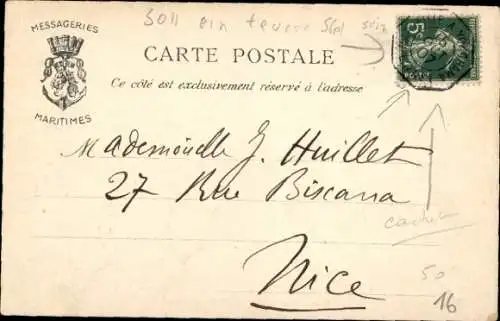 MESSAGERIES
MARITIMES
3011 ein
CARTE POSTALE
Ce côté est exclusivement réservé à l'adresse
5
POSTES
Mademoiselle J. Huillet
27 Rue Biscarra
Nice
cachet
50
16